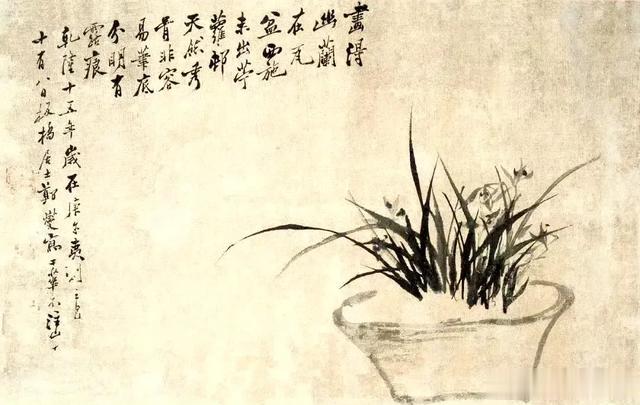 畫得
幽蘭
在瓦
盆西施
未出苧
蘿邨
天然秀
骨非容
易底
分明有
露痕
乾隆十五年歲在庚午夷則
十有八日板橋居士鄭燮寫于華不注山下